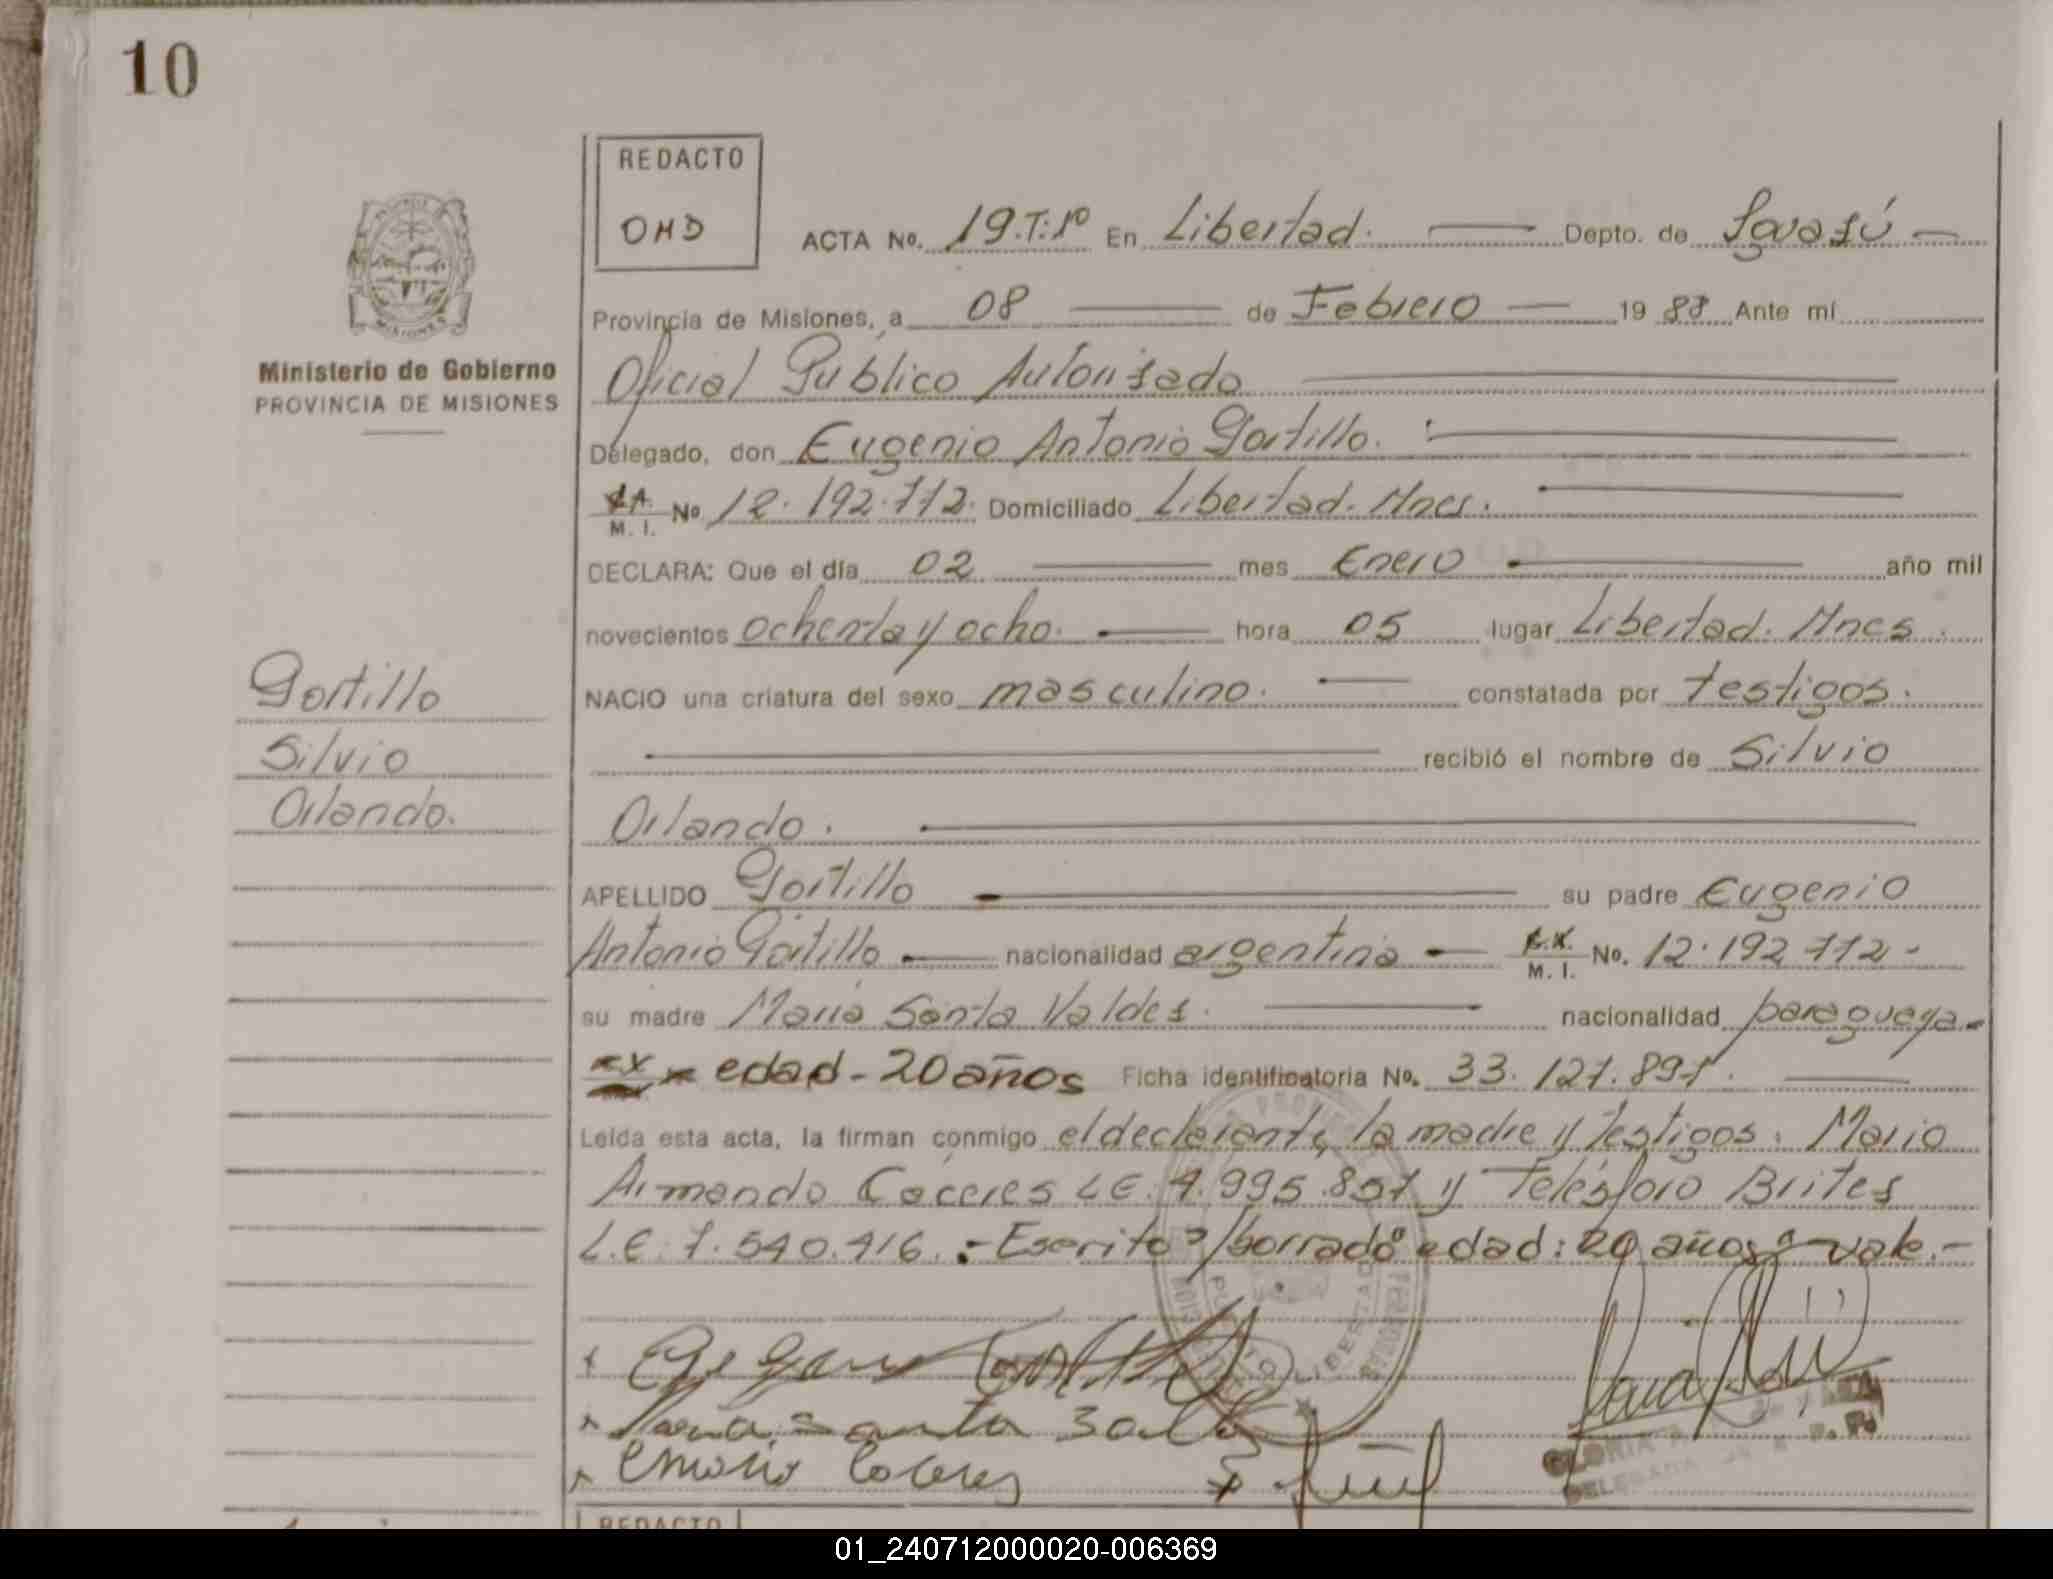 10
REDACTO
OMD
ACTA No. 19.T:1º En Libertad. Depto. de Iguazú
Provincia de Misiones, a 08 de Febrero 1988 Ante mí
Oficial Público Autorizado
Ministerio de Gobierno
PROVINCIA DE MISIONES
Delegado, don Eugenio Antonio Portillo.
M. I. No 12.192.772. Domiciliado Libertad. Mnes.
DECLARA: Que el día 02 mes Enero año mil
novecientos ochenta y ocho. hora 05 lugar Libertad. Mnes.
NACIO una criatura del sexo masculino. constatada por testigos.
recibió el nombre de Silvio
Orlando.
Portillo
Silvio
Orlando.
APELLIDO Portillo su padre Eugenio
Antonio Portillo nacionalidad argentina M. I. No. 12.192.772-
su madre María Santa Valdez. nacionalidad paraguaya-
edad-20 años Ficha identificatoria No. 33.127.897.
Leída esta acta, la firman conmigo el declarante, la madre y testigos. Mario
Armando Caceres L.E. 7.995.857 y Telésforo Brites
L.E. 7.540.416.- Escrito s/borrado "edad: 20 años" vale.-
LIBERTAD
GLORIA
DELEGADA
REDACTO
01_240712000020-006369